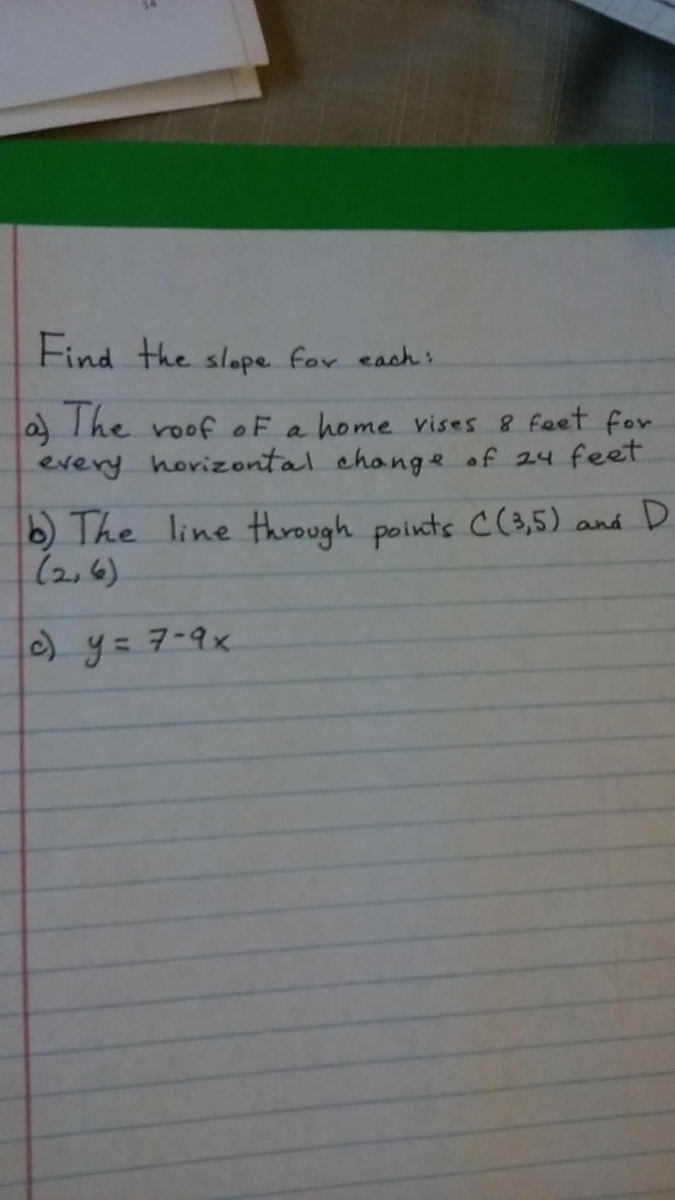 14
Find the slope for each:
a) The roof oF a home rises 8 feet for
every horizontal change of 24 feet
b) The line through points C(3,5) and D
(2,6)
c) y = 7-9x